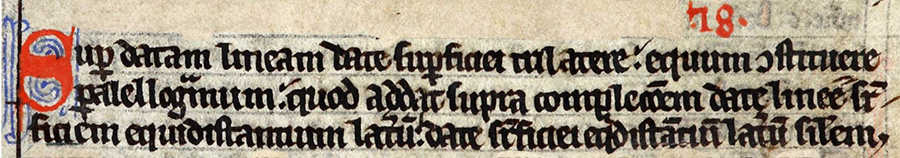 28.
Suꝑ datam lineam date suꝑficiei trilatere: equum ꝯstituere
ꝑalellogᵃmum: quod addat supra completōem date linee suꝑ
ficiem equidistantium lateꝝ: date suꝑficiei eqͥdistātiū lateꝝ silem.